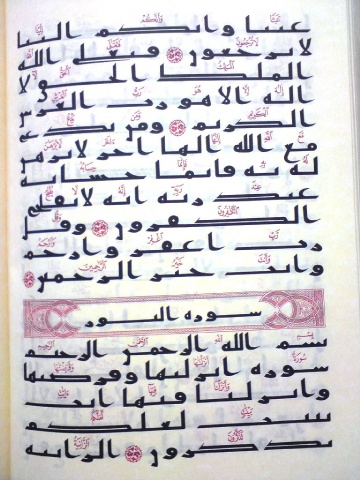 عبثا وانكم الينا
لا ترجعون فتعلى الله
الملك الحق لا
اله الا هو رب العرش
الكريم ومن يدع
مع الله الها اخر لا برهن
له به فانما حسابه
عند ربه انه لا يفلح
الكفرون وقل
رب اغفر وارحم
وانت خير الرحمين
سوره النور
بسم الله الرحمن الرحيم
سوره انزلنها وفرضنها
وانزلنا فيها ايت
بينت لعلكم
تذكرون الزانيه